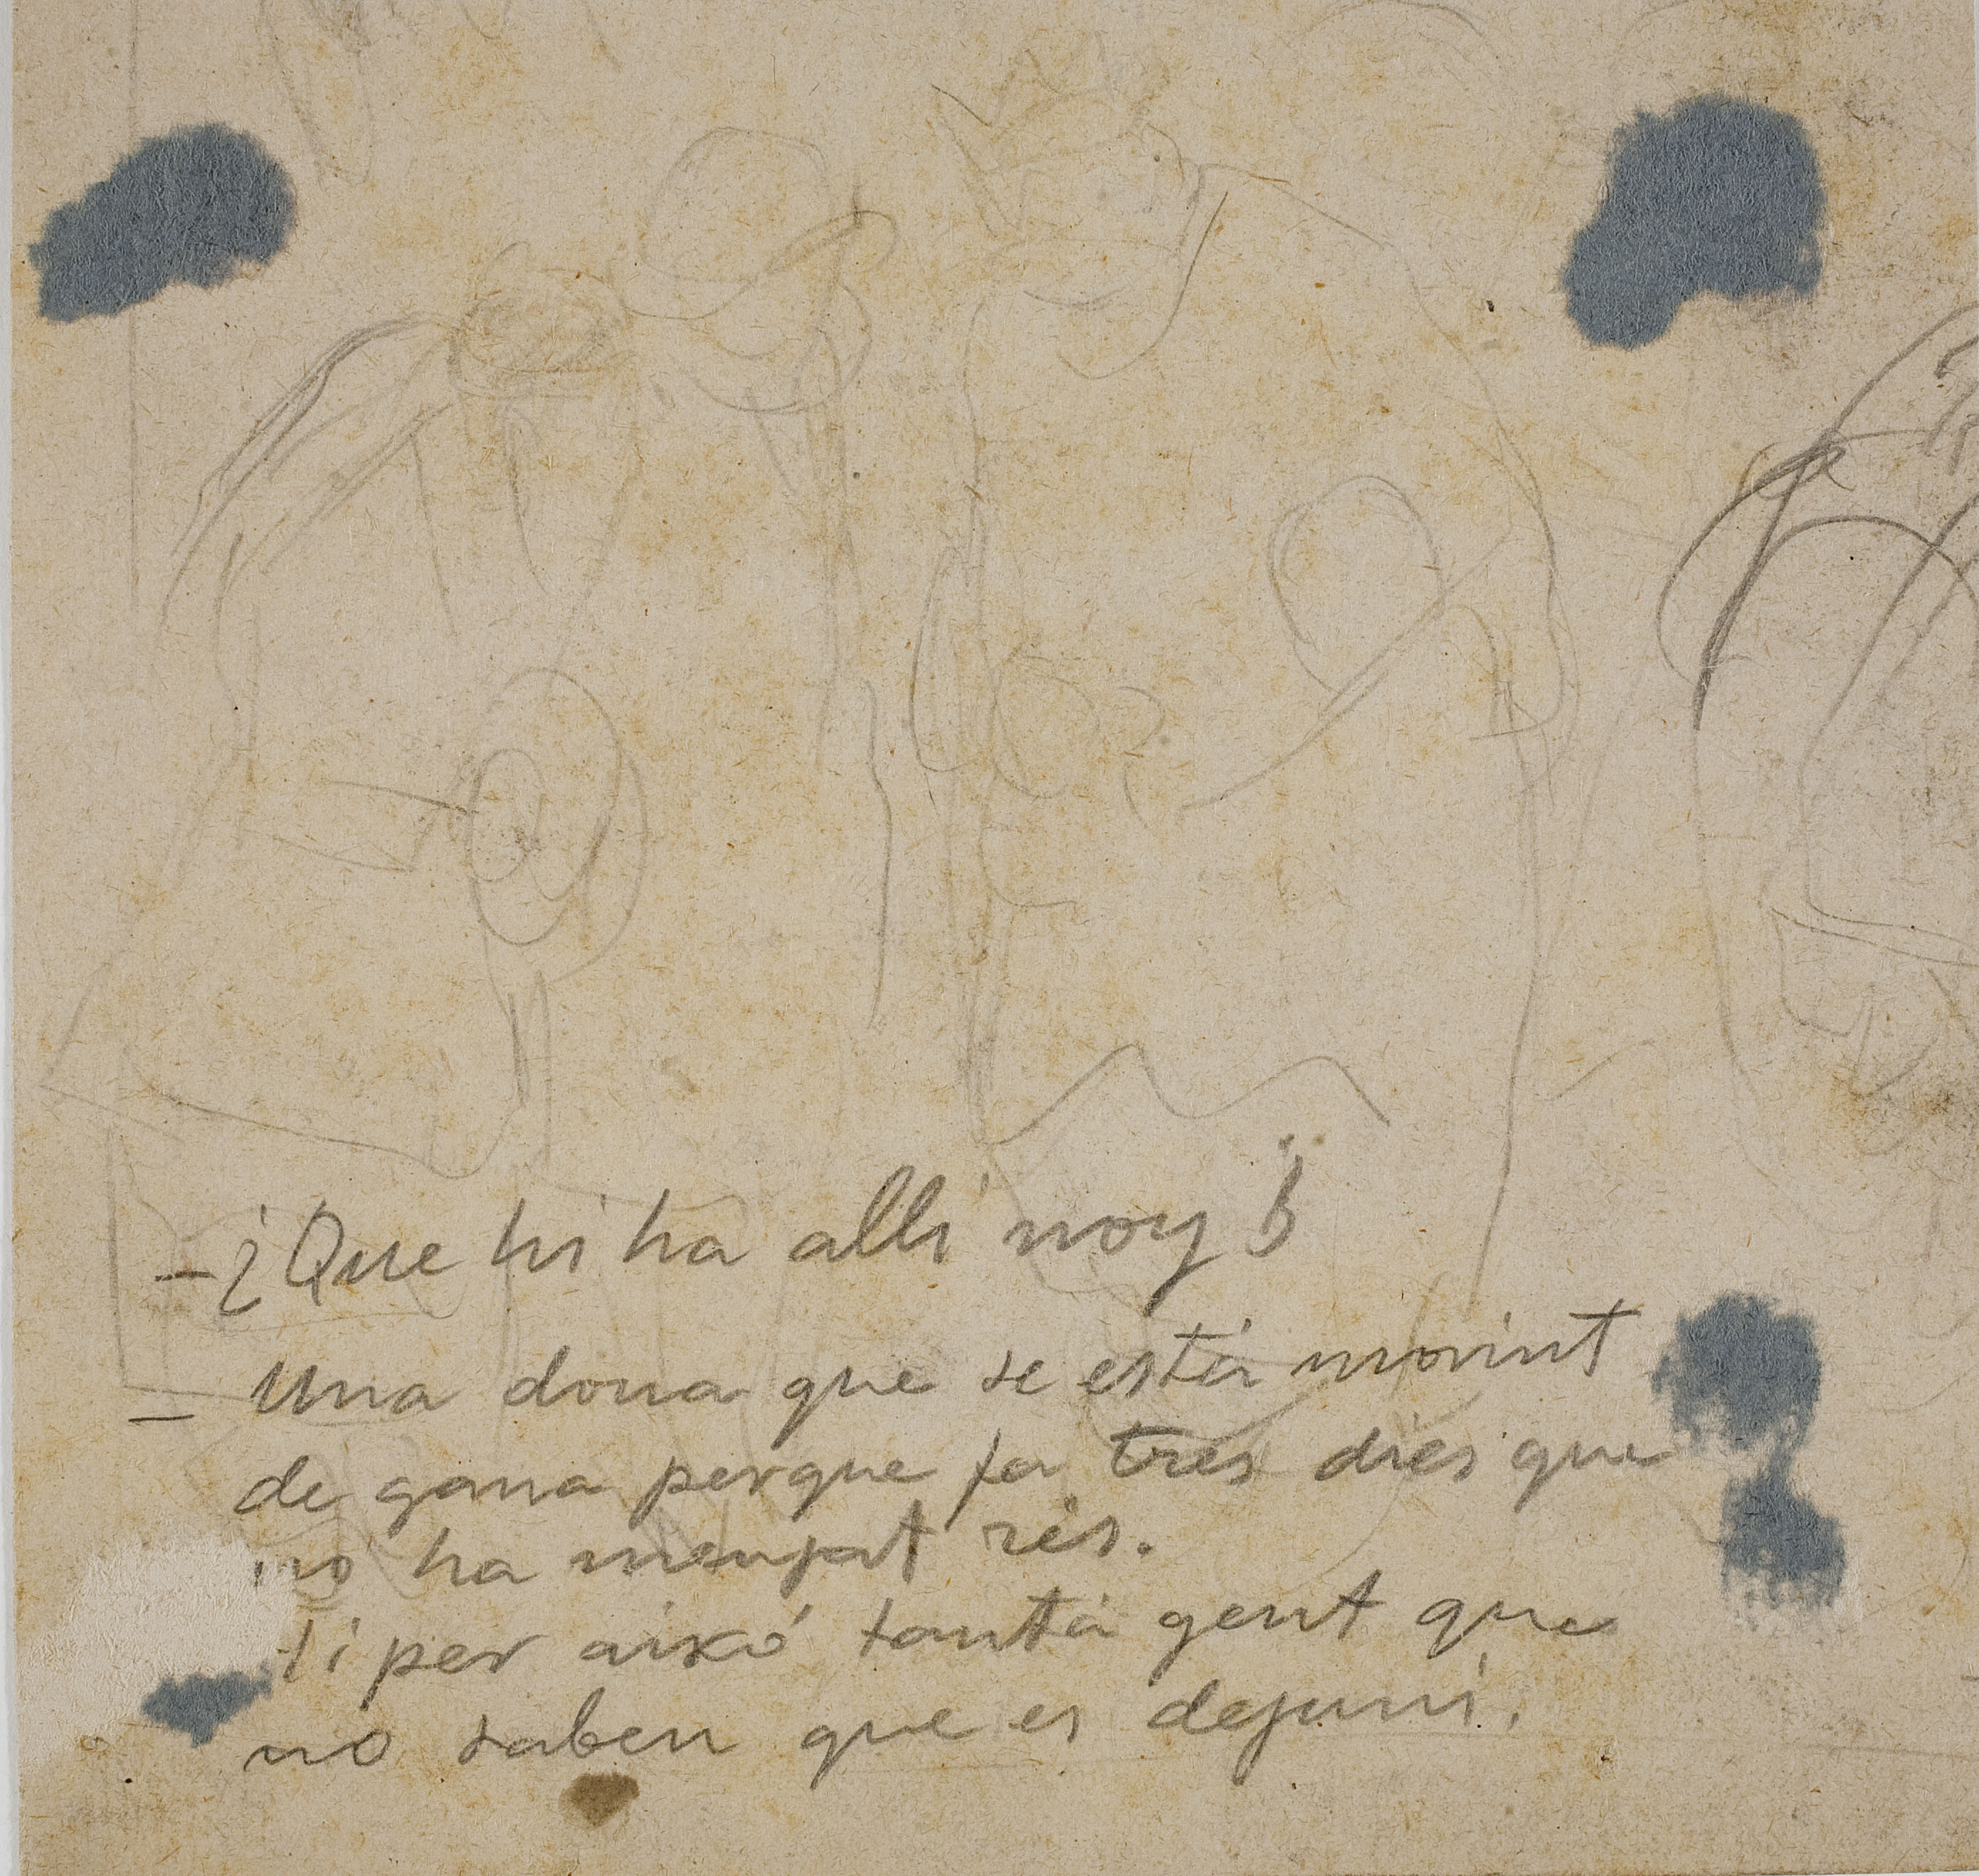 - ¿Que hi ha allí noy?
- Una dona que se está morint
de gana perque fa tres dies que
no ha menjat res.
Ti per aixó tanta gent que
no saben que es dejuni.